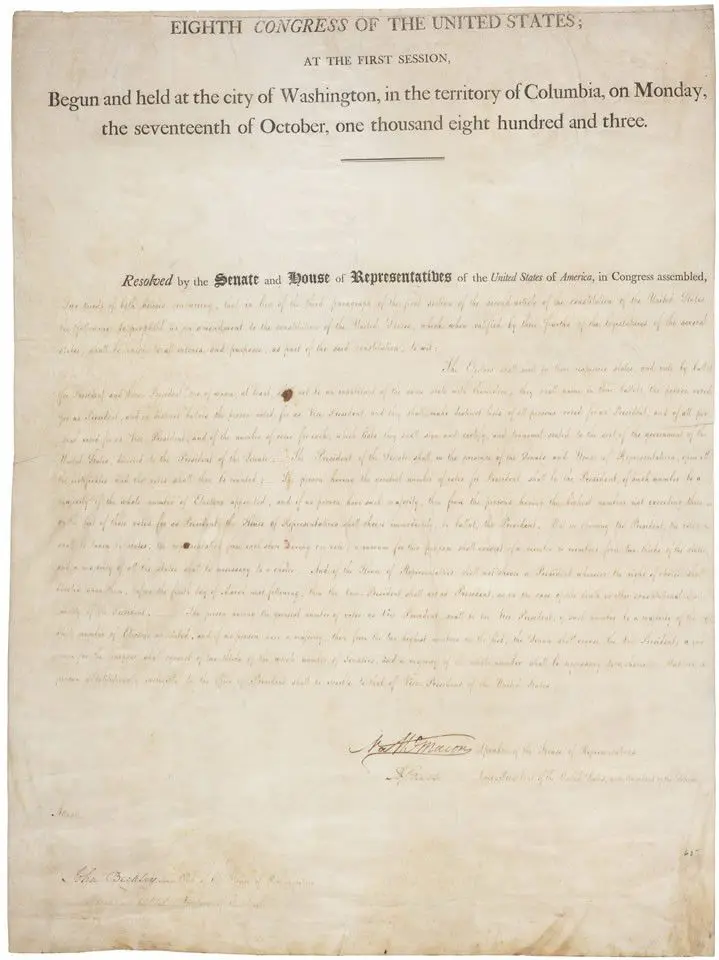 EIGHTH CONGRESS OF THE UNITED STATES;
AT THE FIRST SESSION,
Begun and held at the city of Washington, in the territory of Columbia, on Monday,
the seventeenth of October, one thousand eight hundred and three.
Resolved by the Senate and House of Representatives of the United States of America, in Congress assembled,
Two thirds of both houses concurring, that in lieu of the third paragraph of the first section of the second article of the constitution of the United States
the following be proposed as an amendment to the constitution of the United States, which when ratified by three fourths of the legislatures of the several
states, shall be valid to all intents and purposes, as part of the said constitution, to wit:
The Electors shall meet in their respective states, and vote by ballot
for President and Vice President, one of whom, at least, shall not be an inhabitant of the same state with themselves; they shall name in their ballots the person voted
for as President, and in distinct ballots the person voted for as Vice President, and they shall make distinct lists of all persons voted for as President, and of all per
sons voted for as Vice President, and of the number of votes for each, which lists they shall sign and certify, and transmit sealed to the seat of the government of the
United States, directed to the President of the Senate; The President of the Senate shall in the presence of the Senate and House of Representatives, open all
the certificates and the votes shall then be counted; The person having the greatest number of votes for President, shall be the President, if such number be a
majority of the whole number of Electors appointed; and if no person have such majority, then from the persons having the highest numbers not exceeding three
on the list of those voted for as President, the House of Representatives shall choose immediately, by ballot, the President. But in choosing the President, the votes
shall be taken by states, the representation from each state having one vote; a quorum for this purpose shall consist of a member or members from two thirds of the states,
and a majority of all the states shall be necessary to a choice. And if the House of Representatives shall not choose a President whenever the right of choice shall
devolve upon them, before the fourth day of March next following, then the Vice President shall act as President, as in the case of the death or other constitutional
of the President. The person having the greatest number of votes as Vice President, shall be the Vice President, if such number be a majority of the
number of Electors appointed, and if no person have a majority, then from the two highest numbers on the list, the Senate shall choose the Vice President; a
for the purpose shall consist of two thirds of the whole number of Senators, and a majority of the whole number shall be necessary to a choice. But no
person constitutionally ineligible to the office of President shall be eligible to that of Vice President of the United States.
Nathl Macon Speaker of the House of Representatives
President of the United States, and President of the Senate
Attest
John Beckley Clerk of the House of Representatives